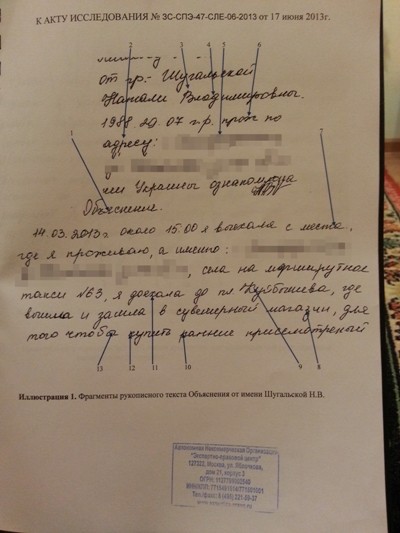 К АКТУ ИССЛЕДОВАНИЯ № ЗС-СПЭ-47-СЛЕ-06-2013 от 17 июня 2013г.
2 3 4 5 6
от гр.- Шугальской
Натали Владимировны.
1988.29.07 г.р. прож по
1 адресу: 7
Украины ознакомлена
Объяснение.
14.03.2013г около 15.00 я выехала с места,
где я проживаю, а именно:
, села на маршрутное
такси №63, я доехала до пл Куйбышева, где
вышла и зашла в сувенирный магазин, для
того чтобы купить раннее присмотреный
13 12 11 10 9 8
Иллюстрация 1. Фрагменты рукописного текста Объяснения от имени Шугальской Н.В.
Автономная Некоммерческая Организация
"Экспертно-правовой центр"
127322, Москва, ул. Яблочкова,
дом 21, корпус 3